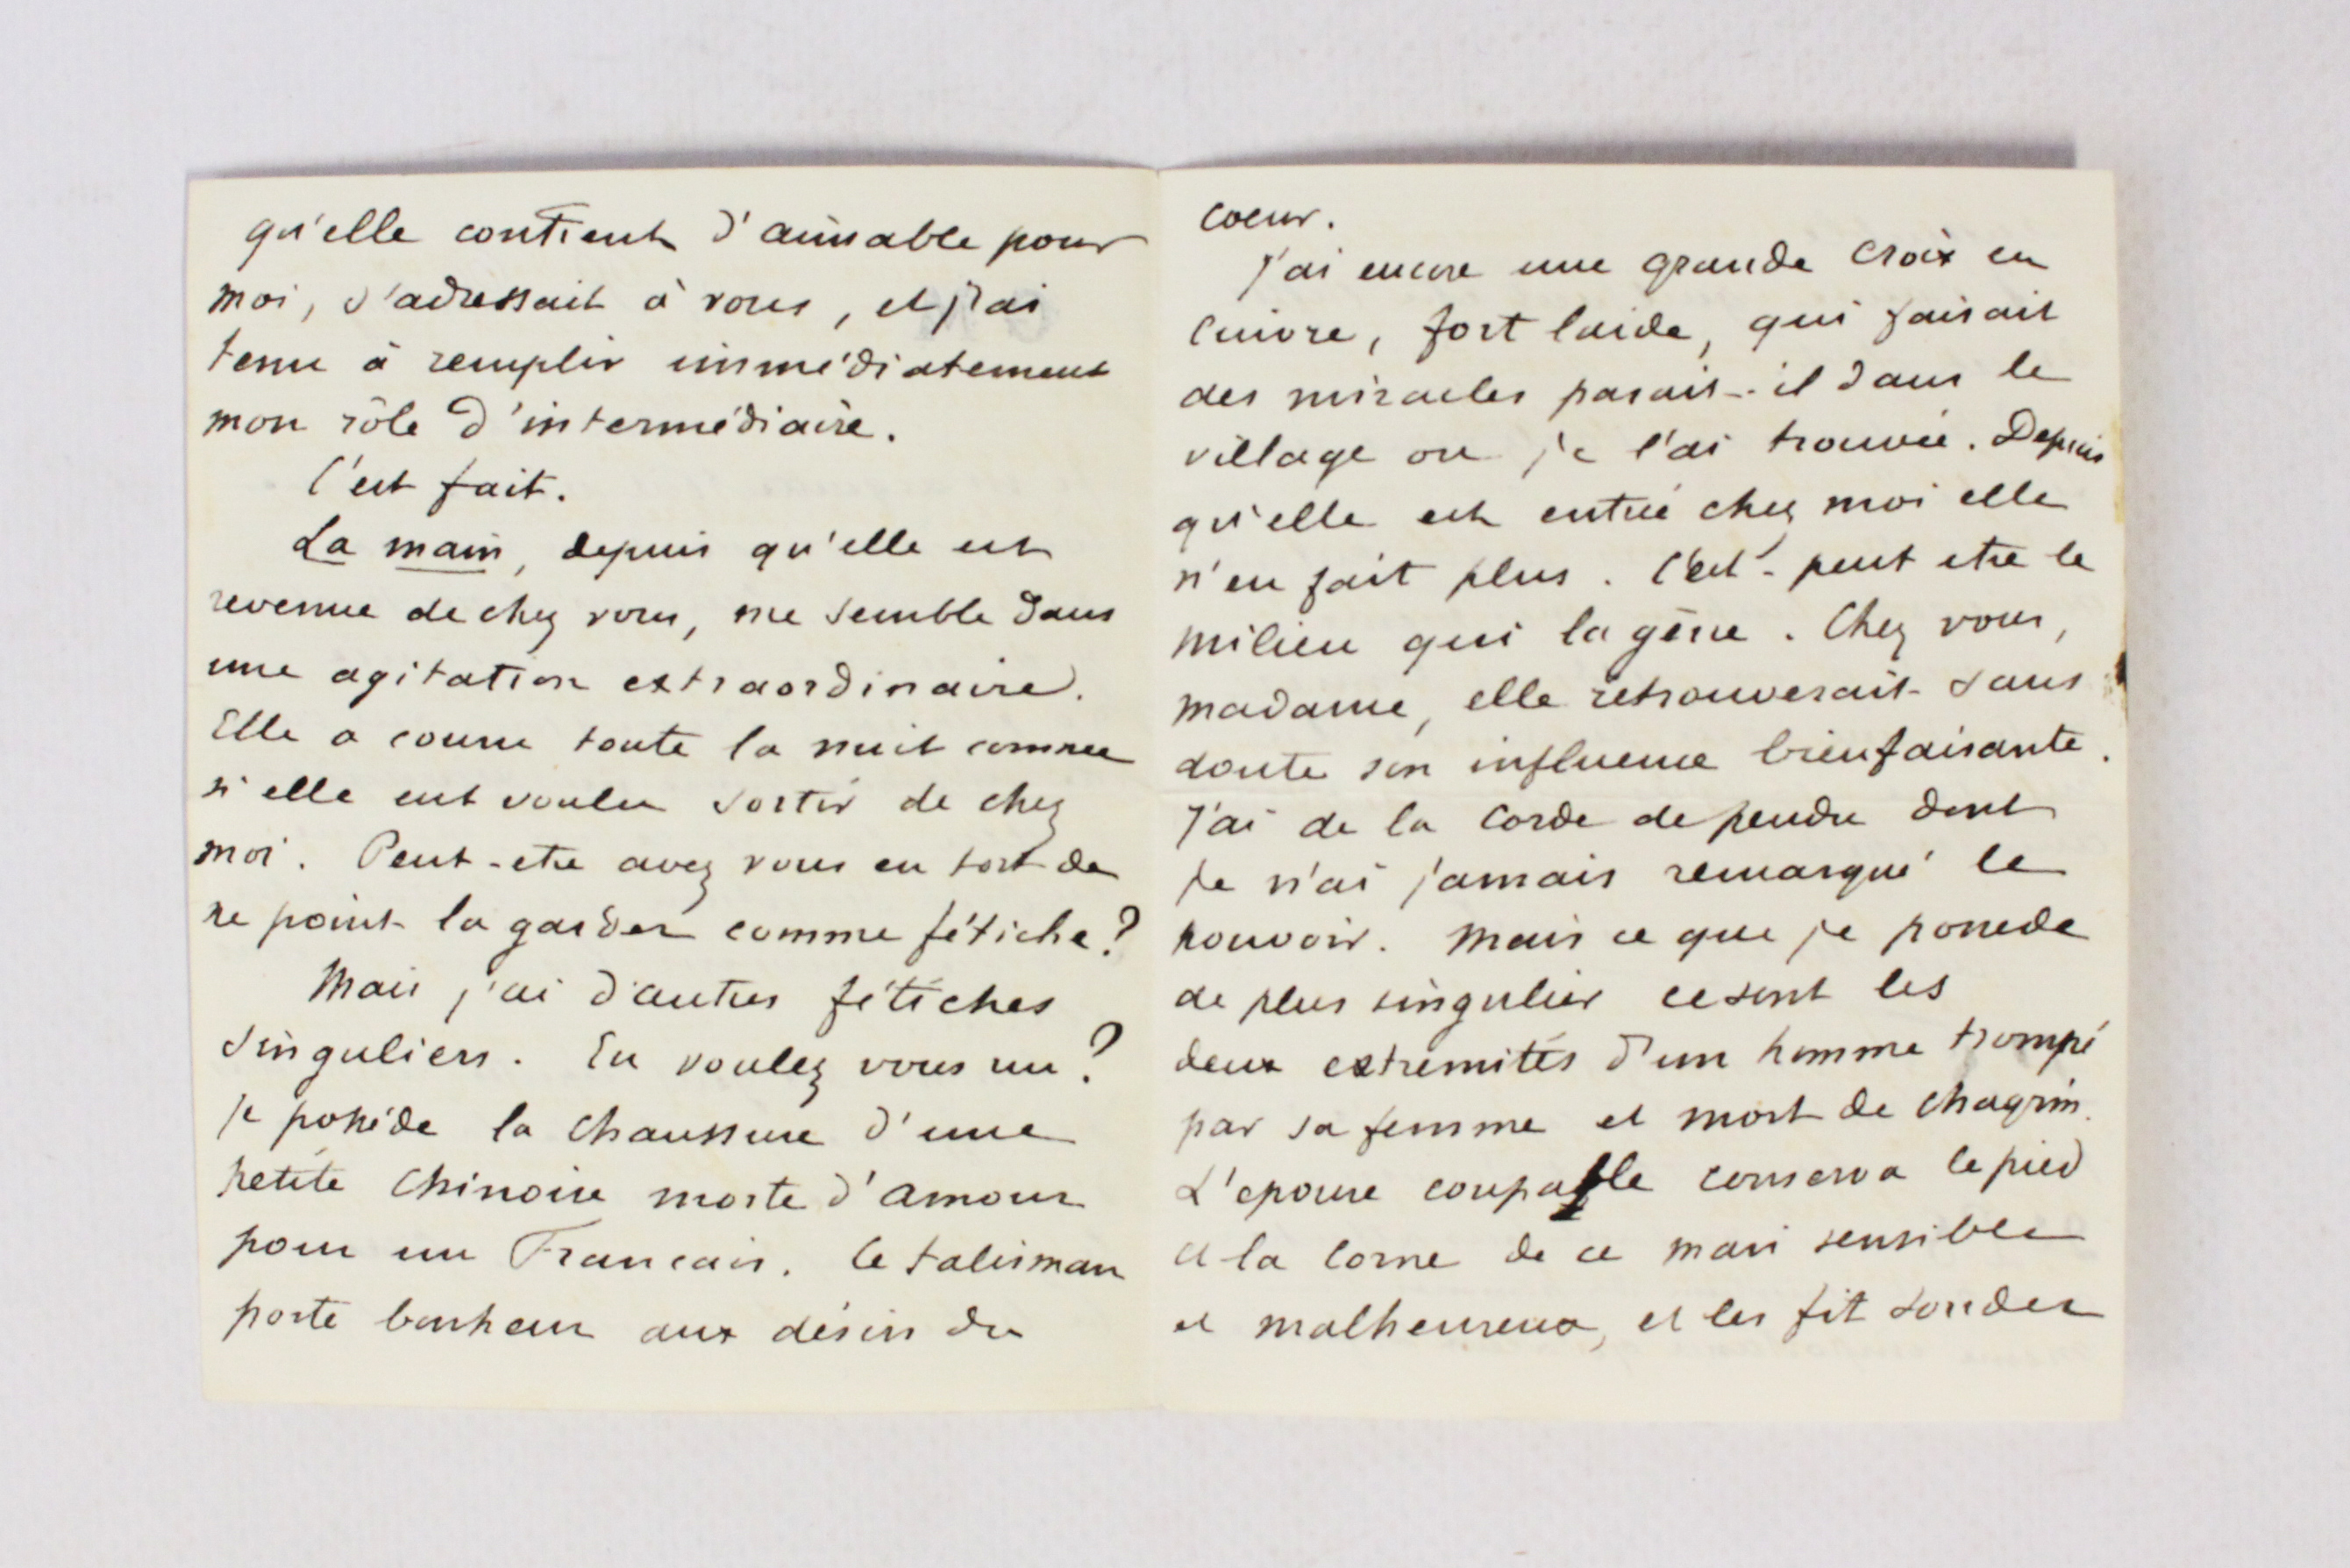 qu'elle contient d'aimable pour
moi, s'adressait à vous, et j'ai
tenu à remplir immédiatement
mon rôle d'intermédiaire.
C'est fait.
La main, depuis qu'elle est
revenue de chez vous, me semble dans
une agitation extraordinaire.
Elle a couru toute la nuit comme
si elle eut voulu sortir de chez
moi. Peut-etre avez vous eu tort de
ne point la garder comme fétiche?
Mais j'ai d'autres fétiches
singuliers. En voulez vous un?
je posséde la chaussure d'une
petite Chinoise morte d'amour
pour un Francais. Ce talisman
porte bonheur aux désirs du
coeur.
J'ai encore une grande croix en
cuivre, fort laide, qui faisait
des miracles parait-il dans le
village ou je l'ai trouvée. Depuis
qu'elle est entrée chez moi elle
n'en fait plus. C'est-peut etre le
milieu qui la gêne. Chez vous,
madame, elle retrouverait sans
doute son influence bienfaisante.
J'ai de la corde de pendu dont
je n'ai jamais remarqué le
pouvoir. Mais ce que je possede
de plus singulier ce sont les
deux extremités d'un homme trompé
par sa femme et mort de chagrin.
L'epouse coupable conserva le pied
et la corne de ce mari sensible
et malheureux, et les fit souder